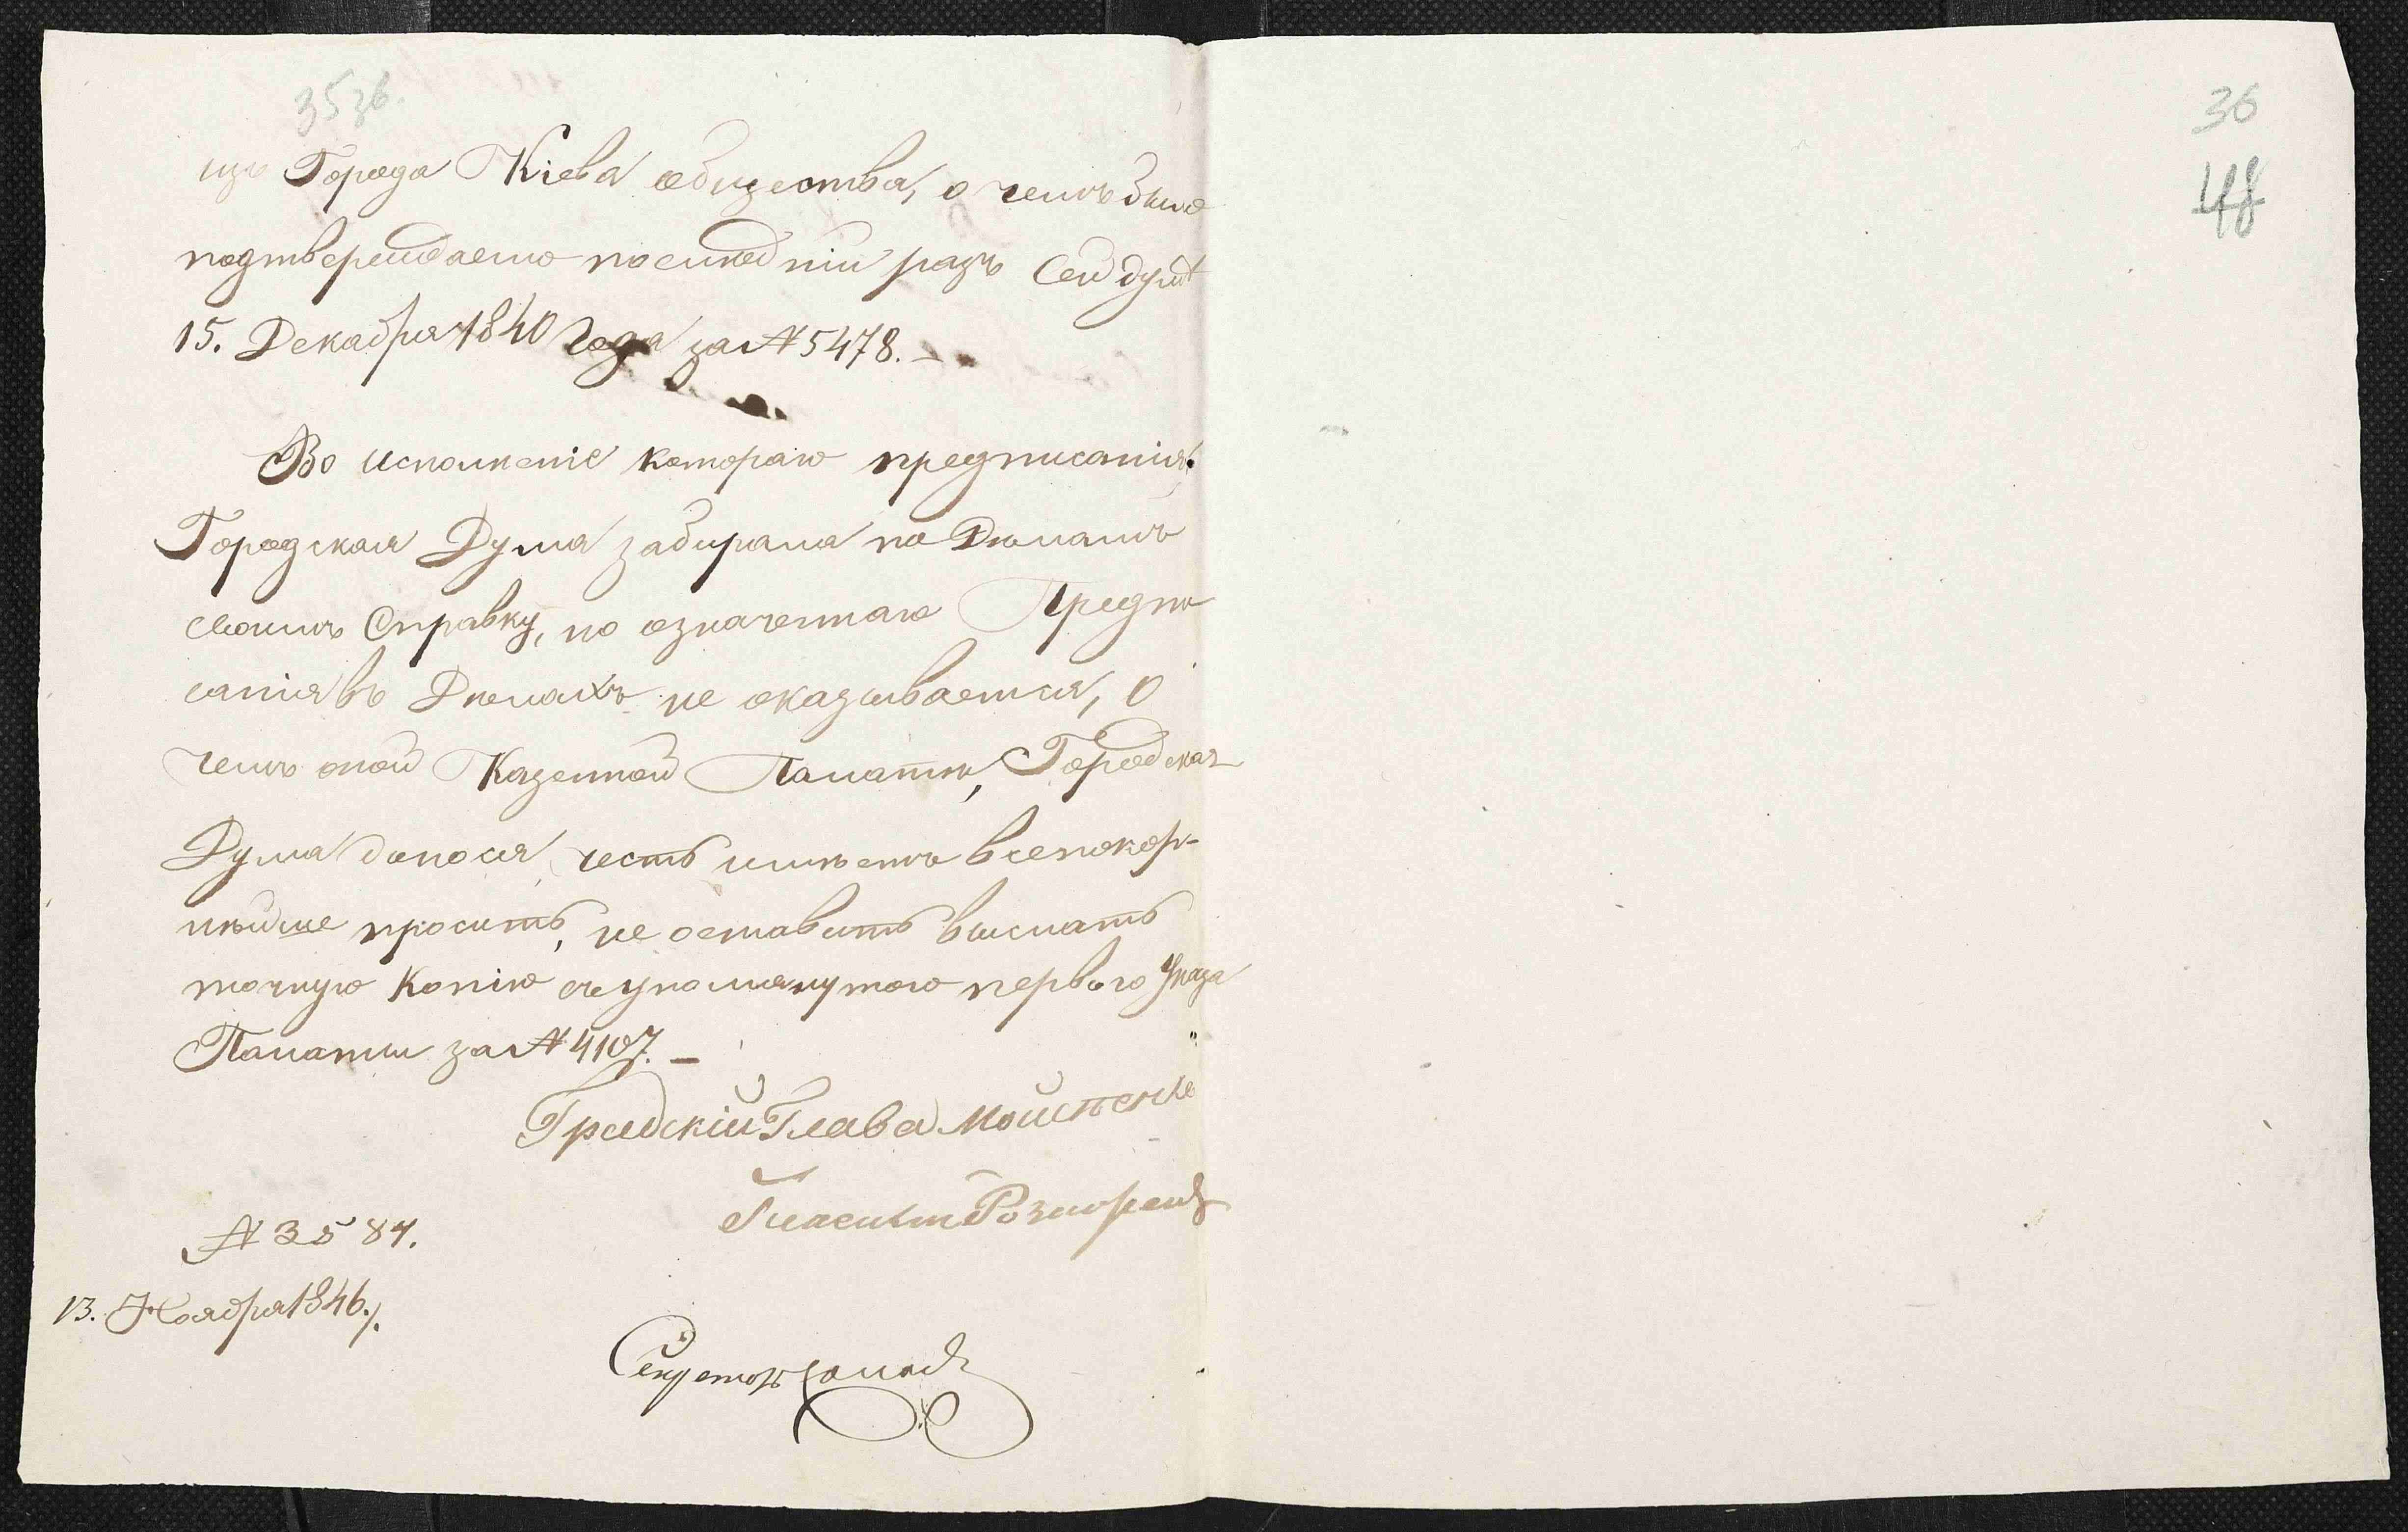 35зв.
изъ Города Кіева общества, о чемъ было
подтверждаемо послѣдній разъ Сей думѣ
15. Декабря 1840 года за № 5478. –
Во исполненіе котораго предписанія.
Городская Дума забирала по Дѣламъ
своимъ Справку, но означеннаго Предпи
санія въ Дѣлахъ не оказывается, о
чемъ оной Казенной Палатѣ, Городская
Дума донося, честь имѣетъ всепокор-
нѣйше просить, не оставить выслать
точную Копію съ упомянутого первого Указа
Палаты за № 4107. –
Градскій Глава
Гласный
№ 3584.
13. Ноября 1846.
Секретарь
36
48